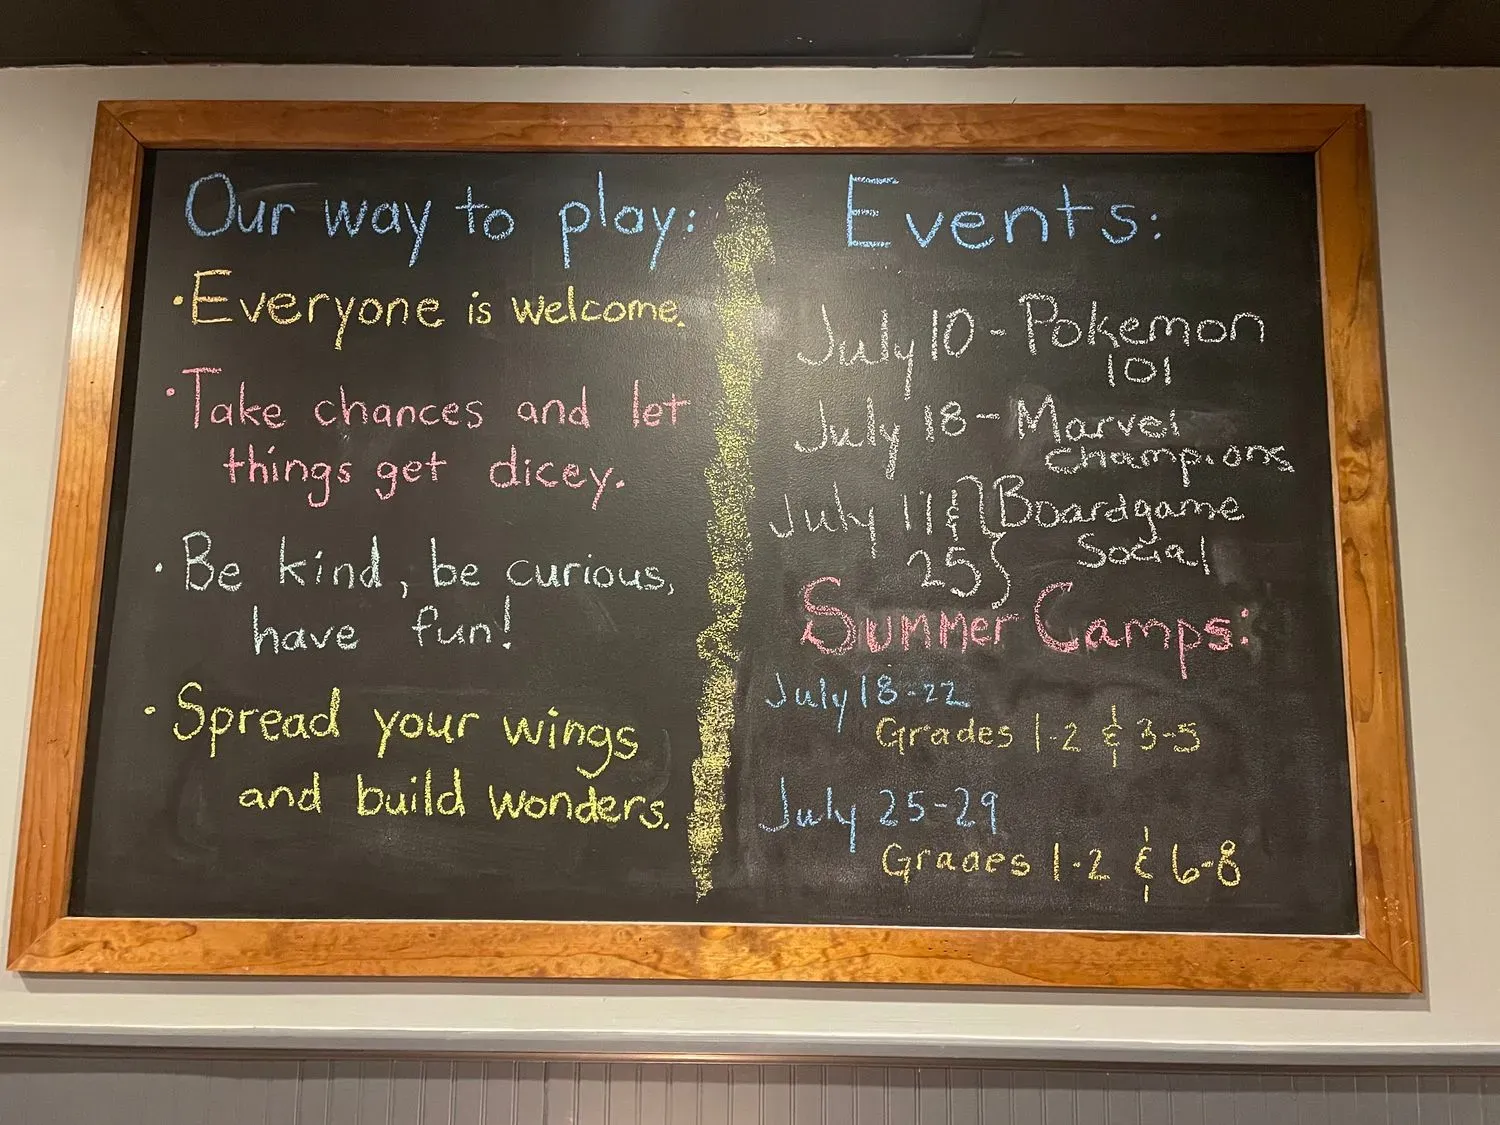 Our way to play:
• Everyone is welcome.
• Take chances and let
things get dicey.
• Be kind, be curious,
have fun!
• Spread your wings
and build wonders.
Events:
July 10 - Pokemon
101
July 18 - Marvel
Champions
July 11 & } Boardgame
25 } Social
Summer Camps:
July 18-22
Grades 1-2 & 3-5
July 25-29
Grades 1-2 & 6-8